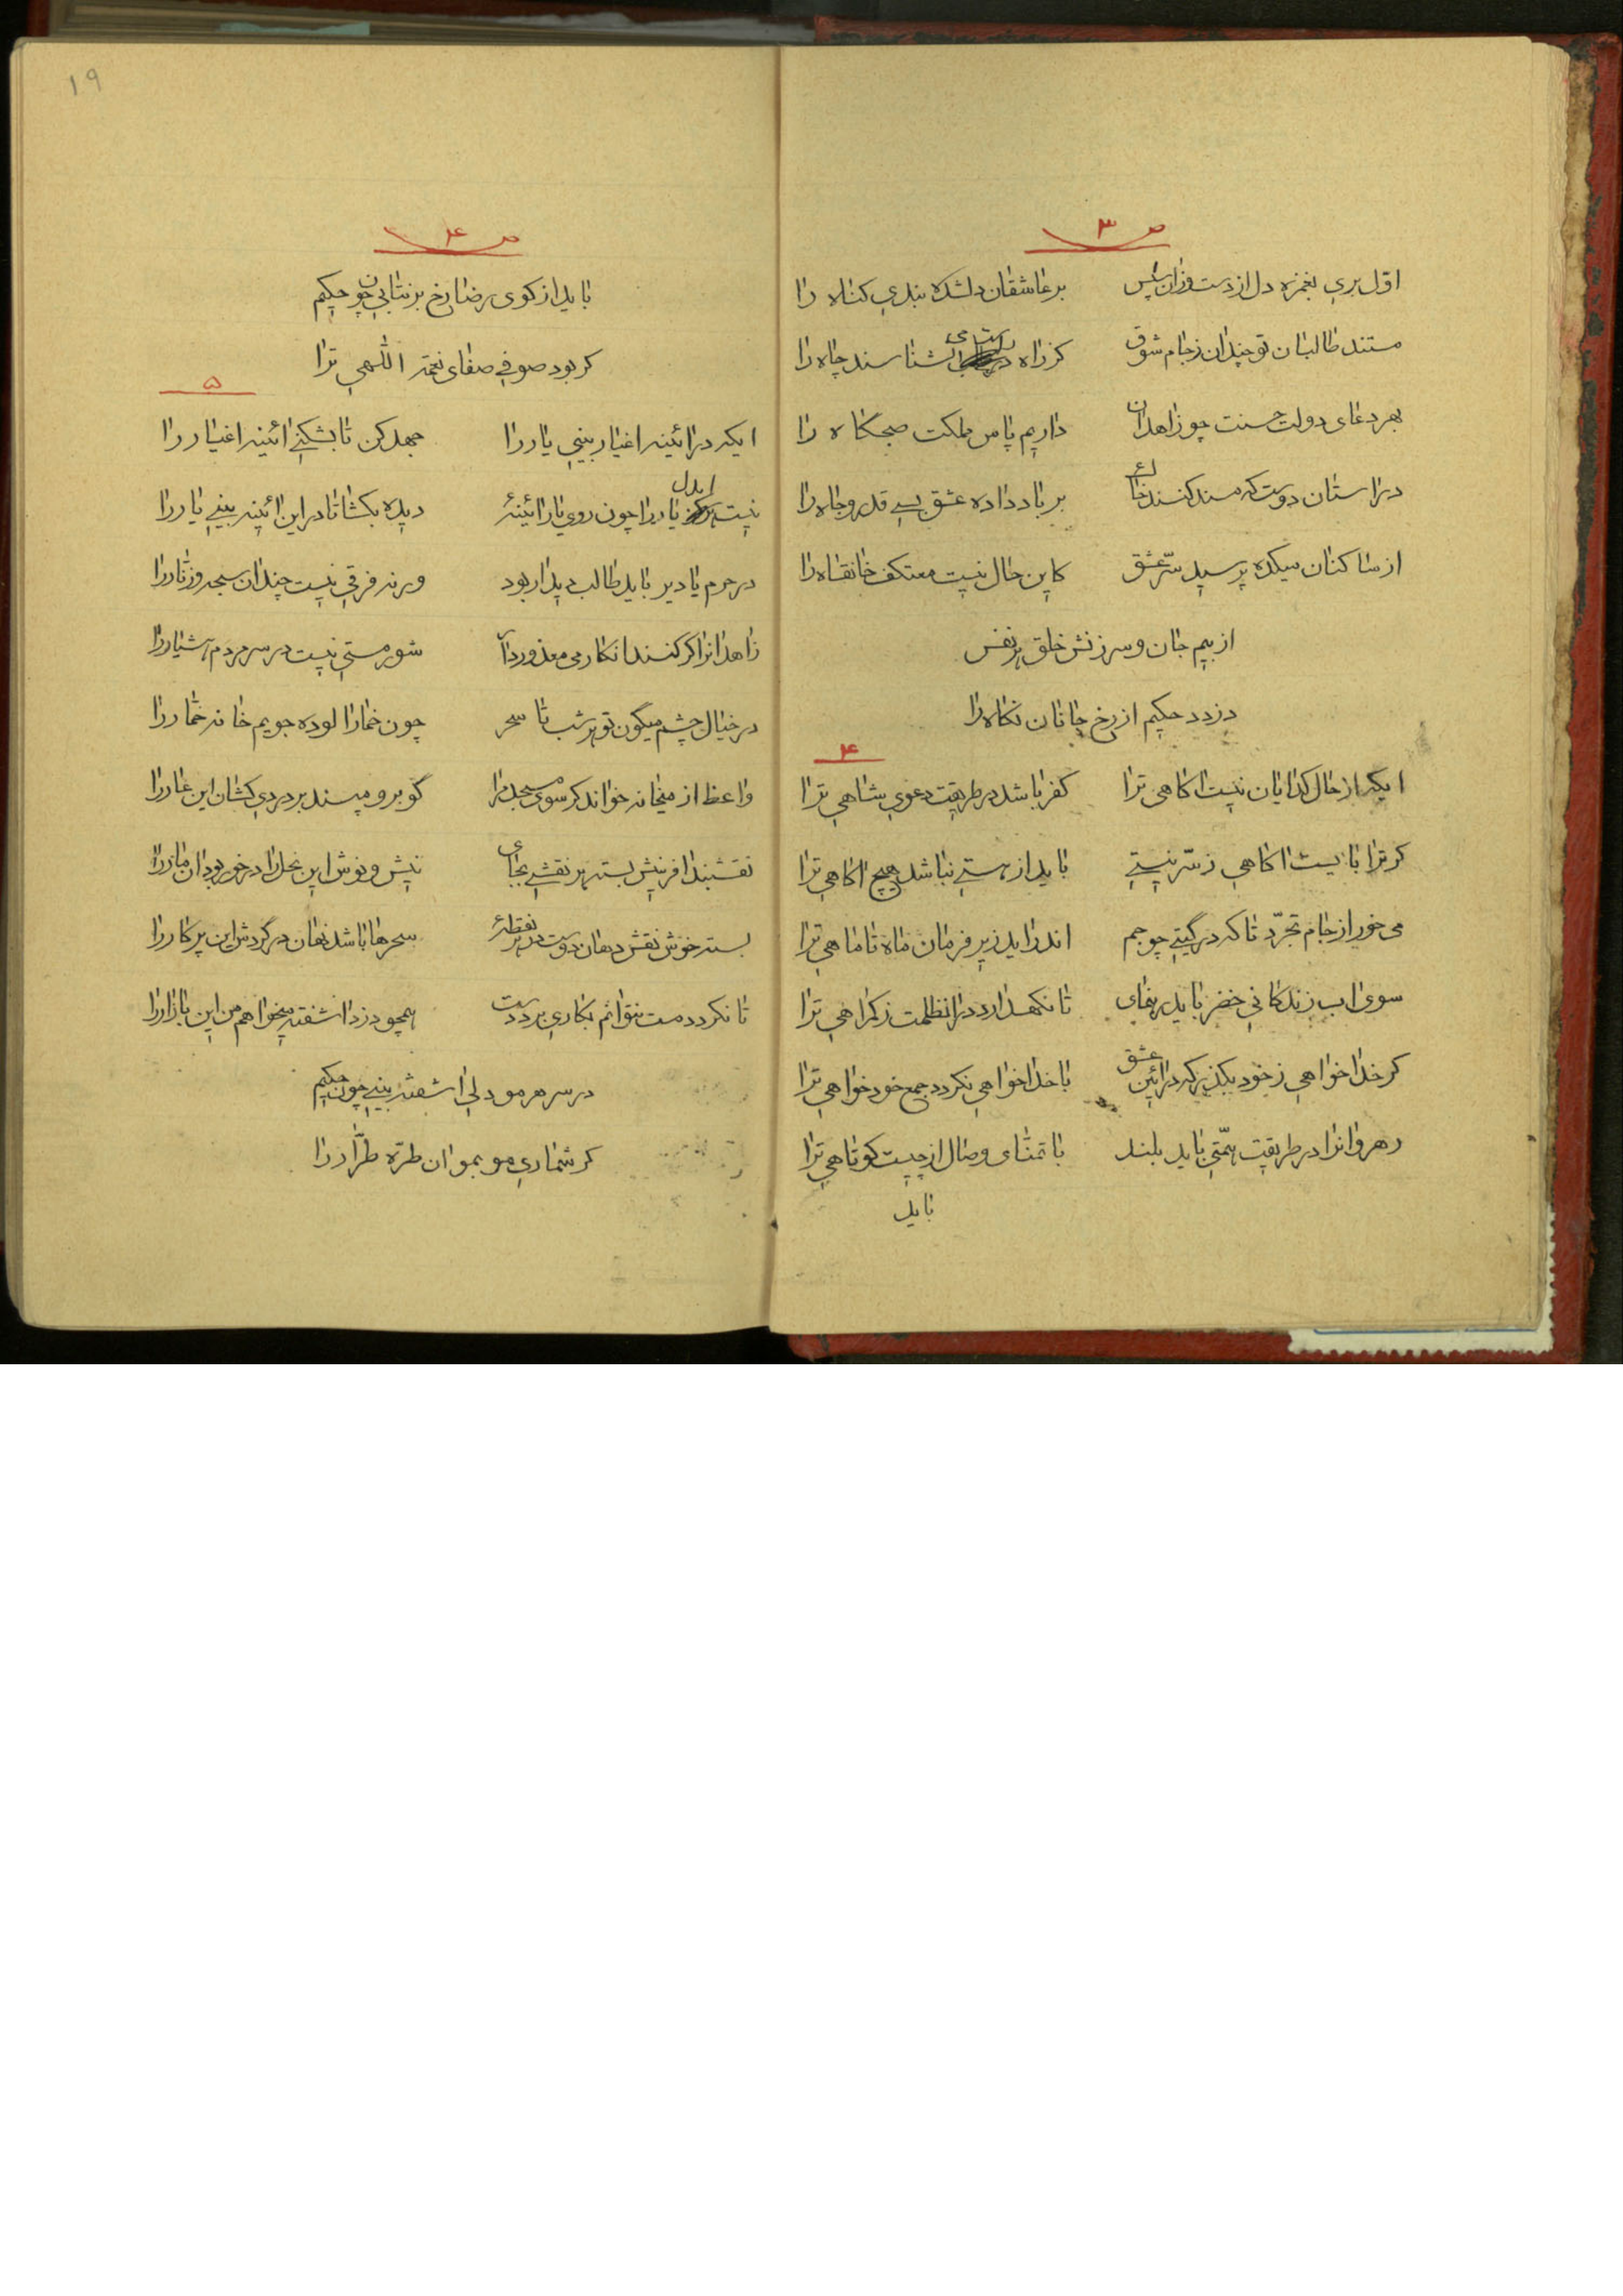 ص ۳
اول بری بغمزه دل از دست وزان سپس
بر عاشقان دلشده بندی کناه را
مستند طالبان تو چندان ز جام شوق
کز راه راست می نشناسند چاه را
بهر دعای دولت حسنت چو زاهدان
داریم پاس مملکت صبحکاه را
در استان دوست که مسند کنند خاک
بر باد داده عشق بسی قدر و جاه را
از ساکنان میکده پرسید سرّ عشق
کاین حال نیست معتکف خانقاه را
از بیم جان و سرزنش خلق هر نفس
دزدد حکیم از رخ جانان نکاه را
۴
ایکه از حال کدایان نیست اکاهی ترا
کفر باشد در طریقت دعوی شاهی ترا
کر ترا بایست اکاهی ز سرّ نیستی
باید از هستی نباشد هیچ اکاهی ترا
می خور از جام تجرّد تا که در گیتی چو جم
اندر اید زیر فرمان ماه تا ماهی ترا
سوی اب زندکانی خضر باید رهنمای
تا نکهدارد در انظلمت ز کمراهی ترا
کر خدا خواهی ز خود بکذر که در ائین عشق
با خدا خواهی نکردد جمع خود خواهی ترا
رهروانرا در طریقت همّتی باید بلند
با تمنّای وصال از چیست کوتاهی ترا
باید
۱۹
ص ۴
باید از کوی رضا رخ بر نتابی چون حکیم
کر بود صوفی صفای نعمة اللّهی ترا
۵
ایکه در ائینه اغیار بینی یار را
جهد کن تا بشکنی ائینه اغیار را
نیست یار را چون روی یار ائینهٔ
دیده بکشا تا در این ائینه بینی یار را
در حرم یا دیر باید طالب دیدار بود
ورنه فرقی نیست چندان سبحه و زنّار را
زاهدانرا کر کنند انکار می معذور دار
شور مستی نیست در سر مردم هشیار را
در خیال چشم میگون تو هر شب تا سحر
چون خمار الوده جویم خانه خمّار را
واعظ از میخانه خواند کر سوی مسجد مرا
گو برو مپسند بر دردی کشان این عار را
نقشبند افرینش بسته هر نقشی بجای
نیش و نوش این نحل را در خور بود ان مار را
بسته خوش نقش دهان دوست در هر نقطهٔ
سحرها باشد نهان در گردش این پرکار را
تا نکردد مست نتوانم بکاری برد دست
همچو دزد اشفته میخواهم من این بازار را
در سر هر مو دلی اشفته بینی چون حکیم
کر شماری مو بمو ان طرّه طرّار را